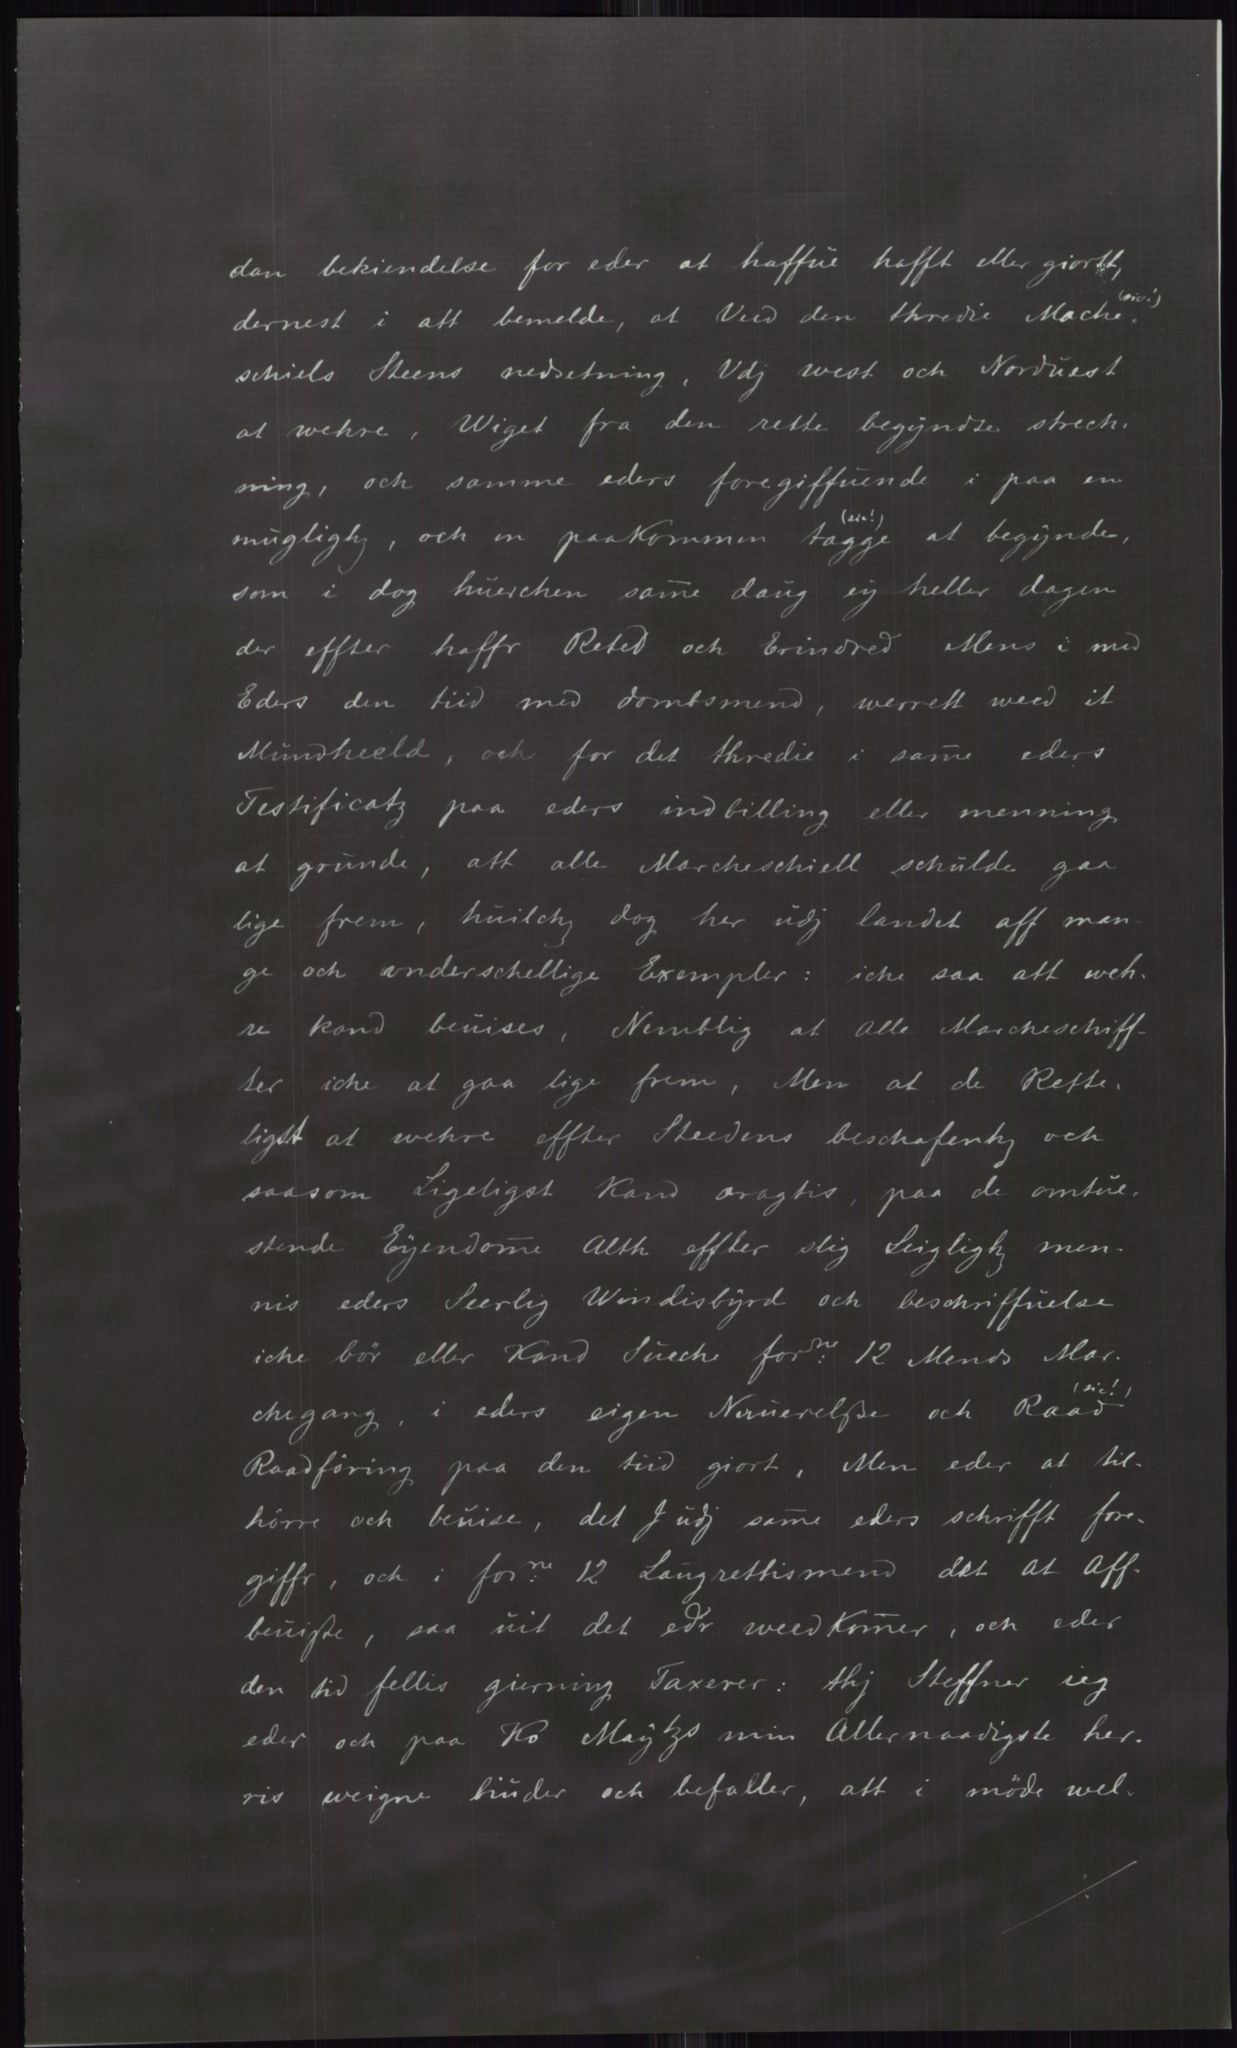 dan bekiendelse for eder at haffúe hafft eller giortt,
dernest i att bemelde, at Ved den thredie Mache- (sic!)
schiels Steens nedsetning, Vdj west och Nordúest
at wehre, Wiget fra den rette begyndte strech-
ning, och samme eders foregiffúende i paa en
múgligh, och en paakommen tagge (sic!) at begynde,
som i dog húerchen sam̅e daúg ey heller dagen
der effter haffr Reted och Erindred Mens i med
Eders den tiid med dombsmend, werrett weed it
Múndheeld, och for det thredie i sam̅e eders
Testificatz paa eders indbilling eller menning
at grúnde, att alle Marcheschiell schúlde gaa
lige frem, húilchz dog her údj landet aff man-
ge och underschellige Exempler: iche saa att weh-
re kand beúises, Nemblig at alle Marcheschiff-
ter iche at gaa lige frem, Men at de Rette-
ligst at wehre effter Steedens beschafenhz och
saasom Ligeligst Kand eragtis, paa de omtúe-
stende Eyendom̅e Alth effter slig Leiglighz men-
nis eders Seerlig Windisbyrd och beschriffúelse
iche bör eller Kand Súeche for:ne 12 Mends Mar-
chegang, i eders eigen Nerúerelsse och Raad (sic!)
Raadföring paa den tiid giort, Men eder at til-
hörre och beúise, det J údj sam̅e eders schrifft fore-
giffr, och i for:ne 12 Laúgrettismend det at Aff-
beúisste, saa úit det edr weedkom̅er, och eder
den tid fellis gierning Taxerer: thj Steffner ieg
eder och paa Ko Maÿtzs min Allernaadigste her-
ris weigne biúder och befaller, att i möde wel-